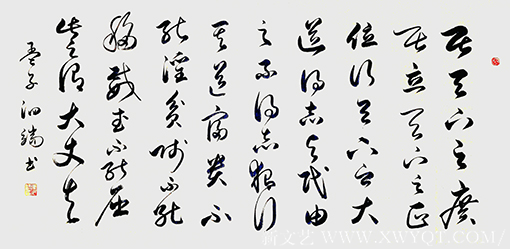 居天下之廣
居立天下之正
位行天下之大
道得志与民由
之不得志獨行
其道富貴不
能淫貧賤不能
移威武不能屈
此之謂大丈夫
孟子 书
新文艺 WWW.XWYOT.COM